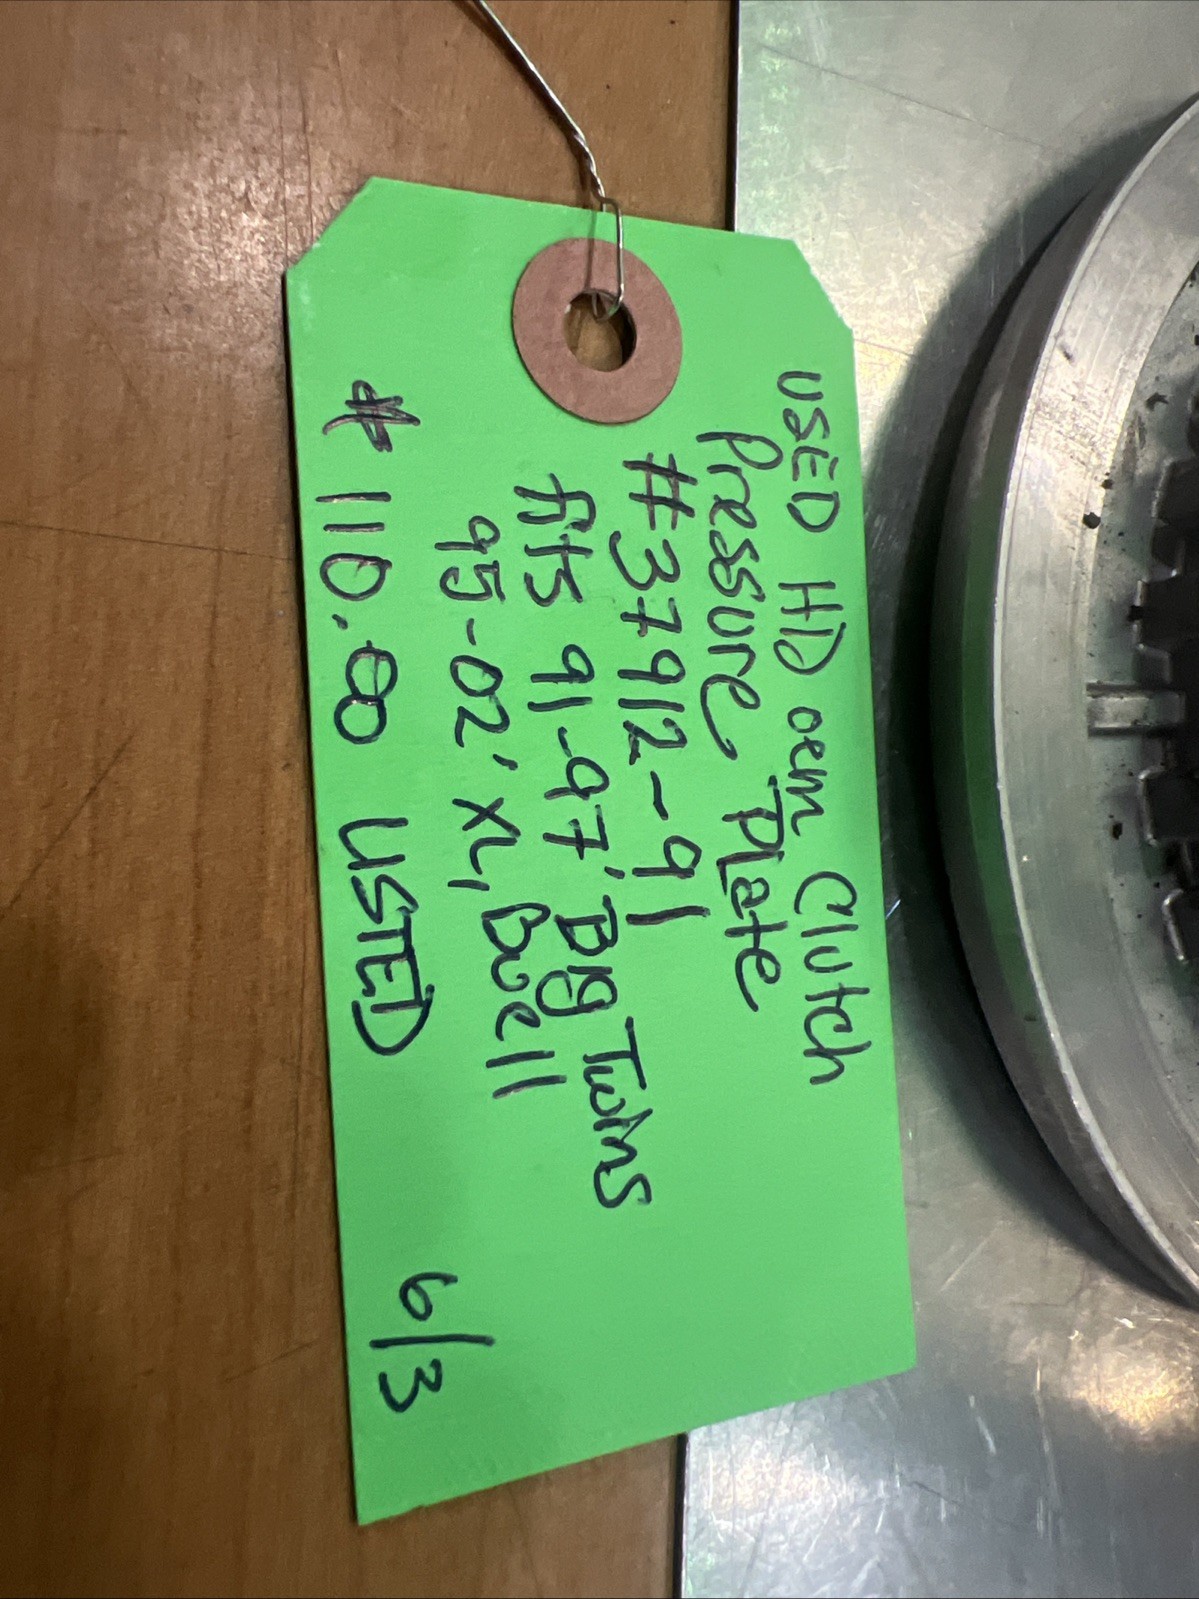 USED HD oem Clutch
Pressure Plate
#37912-91
fits 91-97' Big Twins
95-02' XL, Buell
$110.00 USTED 6/3